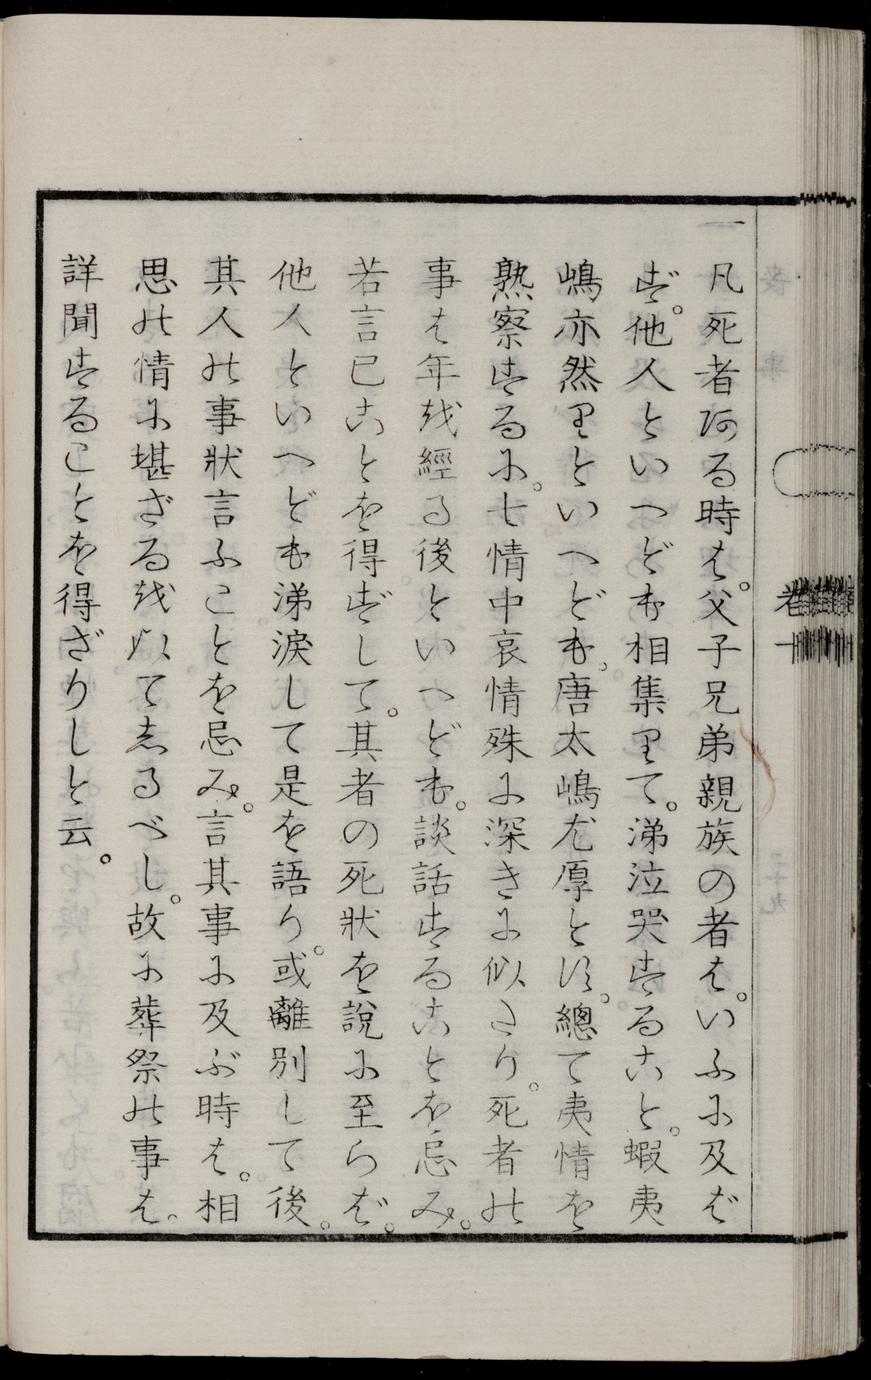 一凡死者阿る時は。父子兄弟親族の者は。いふに及ば
ず。他人といへども相集りて。涕泣哭すること。蝦夷
嶋亦然りといへども。唐太嶋尤厚とす。總て夷情を
熟察するに。七情中哀情殊に深きに似たり。死者の
事は年越經る後といへども。談話することを忌み。
若言已ことを得ずして。其者の死狀を說に至らば。
他人といへども涕淚して是を語り。或離別して後。
其人の事狀言ふことを忌み。言其事に及ぶ時は。相
思の情に堪ざる越以て志るべし。故に葬祭の事は。
詳聞することを得ざりしと云。
卷十